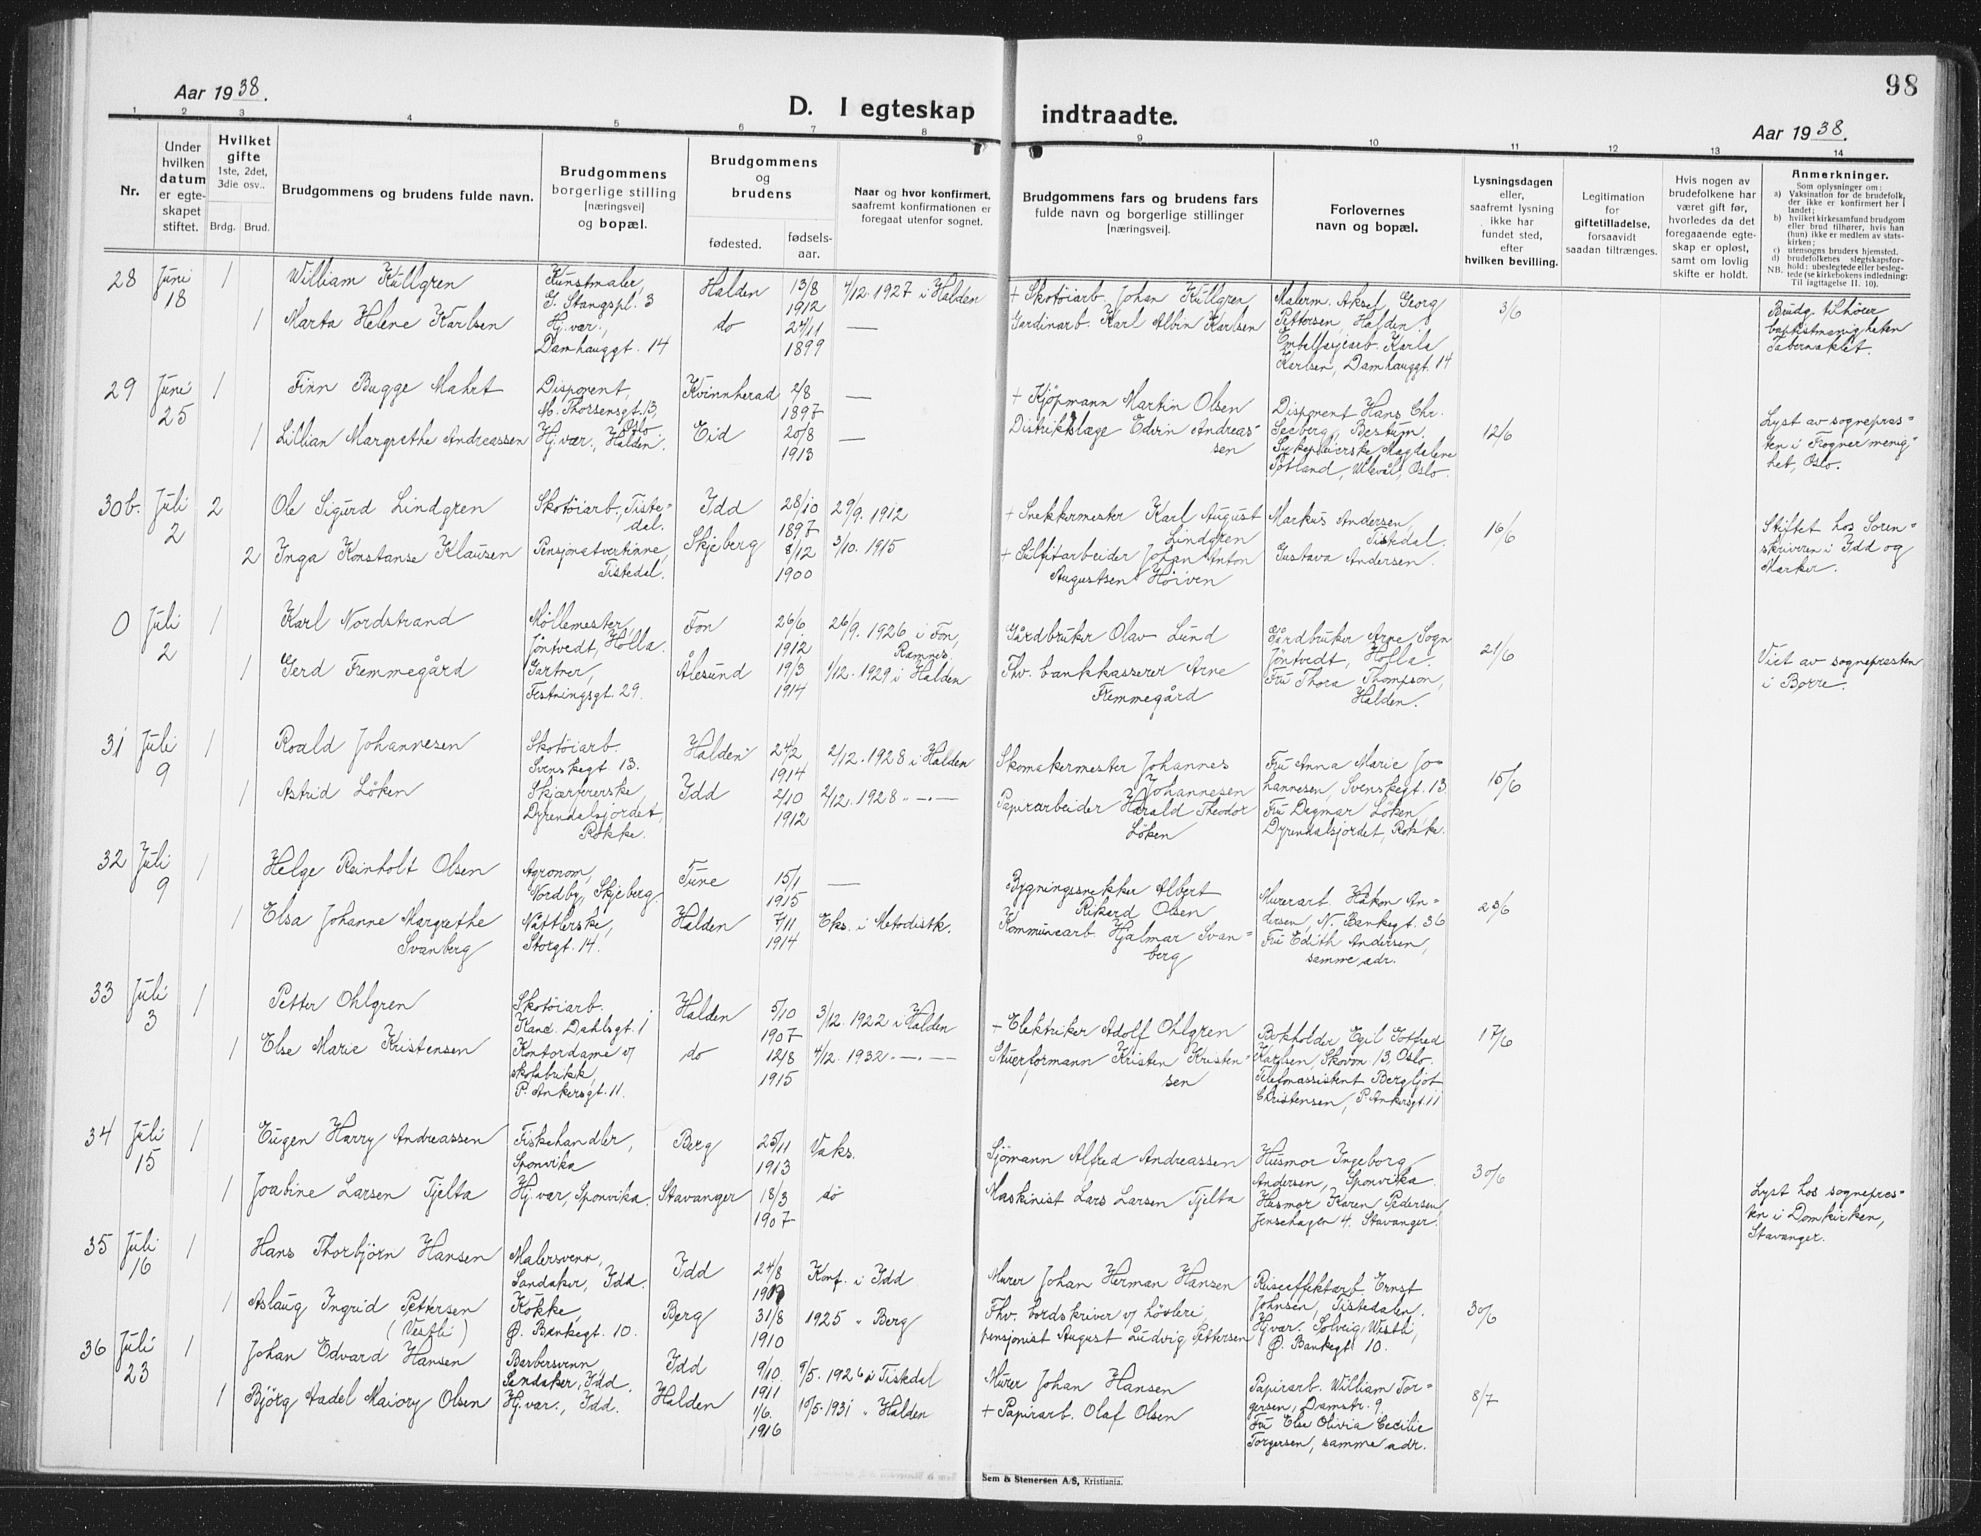 98
Aar 1938.
D. I egteskap indtraadte.
Aar 1938.
1 2 3 4 5 6 7 8 9 10 11 12 13 14
Nr.
Under
hvilken
datum
er egte-
skapet
stiftet.
Hvilket
gifte
1ste, 2det,
3die osv..
Brdg. Brud.
Brudgommens og brudens fulde navn.
Brudgommens
borgerlige stilling
[næringsvei]
og bopæl.
Brudgommens
og
brudens
fødested.
fødsels-
aar.
Naar og hvor konfirmert,
saafremt konfirmationen er
foregaat utenfor sognet.
Brudgommens fars og brudens fars
fulde navn og borgerlige stillinger
[næringsvei].
Forlovernes
navn og bopæl.
Lysningsdagen
eller,
saafremt lysning
ikke har
fundet sted,
efter
hvilken bevilling.
Legitimation
for
giftetilladelse,
forsaavidt
saadan tiltrænges.
Hvis nogen av
brudefolkene har
været gift før,
hvorledes da det
foregaaende egte-
skap er opløst,
samt om lovlig
skifte er holdt.
Anmerkninger.
Som oplysninger om:
a) Vaksination for de brudefolk,
der ikke er konfirmert her i
landet;
b) hvilket kirkesamfund brudgom
eller brud tilhører, hvis han
(hun) ikke er medlem av stats-
kirken;
c) utensogns bruders hjemsted.
d) brudefolkenes slegtskapsfor-
hold: ubeslegtede eller besleg-
tede (se kirkebokens indledning:
NB. Til iagttagelse II. 10).
28 Juni 18 1
William Kullgren
Kunstmaler,
G. Stangspl. 3
Halden 13/8 1912
4/12. 1927 i Halden
+ Skotøiarb. Johan Kullgren
Malerm. Aksel Georg
Pettersen, Halden
3/6
Brudg. tilhører
baptistmenigheten
Tabernaklet.
1 Marta Helene Karlsen
Hj.vær.,
Damhauggt. 14
do 24/11 1899
—
Gardinarb. Karl Albin Karlsen
Emballasjearb. Karla
Karlsen, Damhauggt. 14
29 Juni 25 1
Finn Bugge Mahrt
Disponent,
M. Thorsensgt. 13,
Oslo
Kvinnherad 2/8 1897
—
+ Kjøpmann Martin Olsen
Disponent Hans Chr.
Seeberg, Bestum.
12/6
Lyst av sognepres-
ten i Frogner menig-
het, Oslo.
1 Lillian Margrethe Andreassen
Hj.vær., Halden.
Eid 20/8 1913
—
Distriktslæge Edvin Andreas-
sen
Sykepleierske Magdalene
Potland, Ulevål, Oslo.
30b. Juli 2 2
Ole Sigurd Lindgren
Skotøiarb., Tiste-
dal.
Idd 28/10 1897
29/9. 1912
+ Snekkermester Karl August
Lindgren
Markus Andersen,
Tistedal.
16/6
Stiftet hos Soren-
skriveren i Idd og
Marker.
2 Inga Konstanse Klausen
Pensjonatvertinne,
Tistedal.
Skjeberg 8/12 1900
3/10. 1915
+ Sulfitarbeider Johan Anton
Augustsen Höiven
Gustava Andersen.
0 Juli 2 1
Karl Nordstrand
Møllemester,
Jöntvedt, Holla.
Fon 26/6 1912
26/9. 1926 i Fon,
Ramnes
Gårdbruker Olav Lund
Gårdbruker Arne Sogn
Jöntvedt, Holla.
21/6
Viet av sognepresten
i Borre.
1 Gerd Fremmegård
Gartner,
Festningsgt. 29.
Ålesund 19/3 1914
1/12. 1929 i Halden
Fhv. bankkasserer Arne
Fremmegård
Fru Thora Thompson,
Halden.
31 Juli 9 1
Roald Johannesen
Skotöiarb.
Svenskegt. 13.
Halden 24/2 1914
2/12. 1928 i Halden
Skomakermester Johannes
Johannesen
Fru Anna Marie Jo-
hannesen, Svenskegt. 13.
15/6
1 Astrid Löken
Skjærererske,
Dyrendalsjordet,
Rokke.
Idd 2/10 1912
2/12. 1928 „ — . —
Papirarbeider Harald Theodor
Löken
Fru Dagmar Löken,
Dyrendalsjordet, Rokke.
32 Juli 9 1
Helge Reinholt Olsen
Agronom,
Nordby, Skjeberg.
Tune 15/1 1915
—
Bygningssnekker Albert
Rikard Olsen
Murerarb. Håkon An-
dersen, N. Bankegt. 36
23/6
1 Elsa Johanne Margrethe
Svanberg
Nåtlerske,
Storgt. 14.
Halden 7/11 1914
Eks. i Metodistk.
Kommunearb. Hjalmar Svan-
berg
Fru Edith Andersen,
samme adr.
33 Juli 3 1
Petter Ohlgren
Skotöiarb.
Kand. Dahlsgt. 1
Halden 5/10 1907
3/12. 1922 i Halden
+ Elektriker Adolf Ohlgren
Bokholder Egil Gotfred
Karlsen, Skovvn. 13 Oslo.
17/6
1 Else Marie Kristensen
Kontordame v/
skofabrikk,
P. Ankersgt. 11.
do 12/8 1915
4/12. 1932 — . —
Stuerformann Kristen Kristen-
sen
Telefonassistent Bergljot
Christensen, P. Ankersgt. 11
34 Juli 15 1
Eugen Harry Andreassen
Fiskehandler,
Sponvika
Berg 25/11 1913
Vaks.
Sjömann Alfred Andreassen
Husmor Ingeborg
Andersen, Sponvika
30/6
Lyst hos sognepres-
ten i Domkirken,
Stavanger.
1 Joabine Larsen Tjelta
Hj.vær, Sponvika.
Stavanger 18/3 1907
do
Maskinist Lars Larsen Tjelta
Husmor Karen Pedersen,
Jensehagen 4. Stavanger.
35 Juli 16 1
Hans Thorbjörn Hansen
Malersvenn,
Sandaker, Idd.
Idd 24/8
Konf. i Idd
Murer Johan Herman Hansen
Ruseeffektarb. Ernst
Johnsen, Tistedalen.
30/6
1 Aslaug Ingrid Pettersen
(Vestli)
Kokke,
Ø. Bankegt. 10.
Berg 31/8 1910
1925 „ Berg
Fhv. bordskriver v/ høvleri
pensjonist August Ludvig Pettersen
Hj.vær. Solveig Westli,
Ø. Bankegt. 10.
36 Juli 23 1
Johan Edvard Hansen
Barbersvenn,
Sandaker, Idd.
Idd 9/10. 1911
9/5. 1926 i Tistedal
Murer Johan Hansen
Papirarb. William Tor-
gersen, Damstr. 9.
8/7
1 Björg Aadel Maiory Olsen
Hj.vær., Idd.
Halden 1/6. 1916
10/5. 1931 „ Halden
+ Papirarb. Olaf Olsen
Fru Else Olivia Cecilie
Torgersen, samme adr.
Sem & Stenersen A/S, Kristiania.